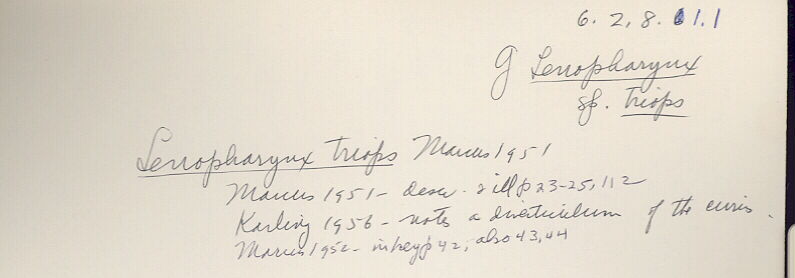 6. 2, 8. 1.1
g Lenopharynx
sp. triops
Lenopharynx triops Marcus 1951
Marcus 1951 - descr. & ill p 23-25, 112
Karling 1956 - notes a diverticulum of the cirrus.
Marcus 1952 - in key p 42, also 43, 44